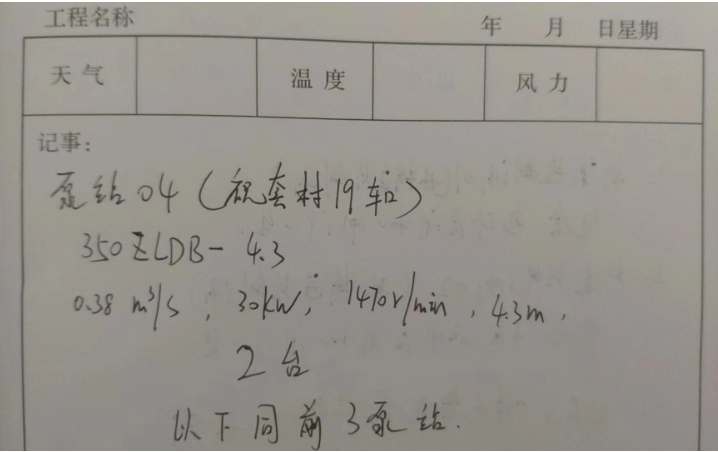 工程名称 年 月 日星期
天气 温度 风力
记事：
泵站04（祝套村19车口）
350ZLDB-4.3
0.38 m³/s，30kW，1470r/min，4.3m，
2台
以下同前3泵站.